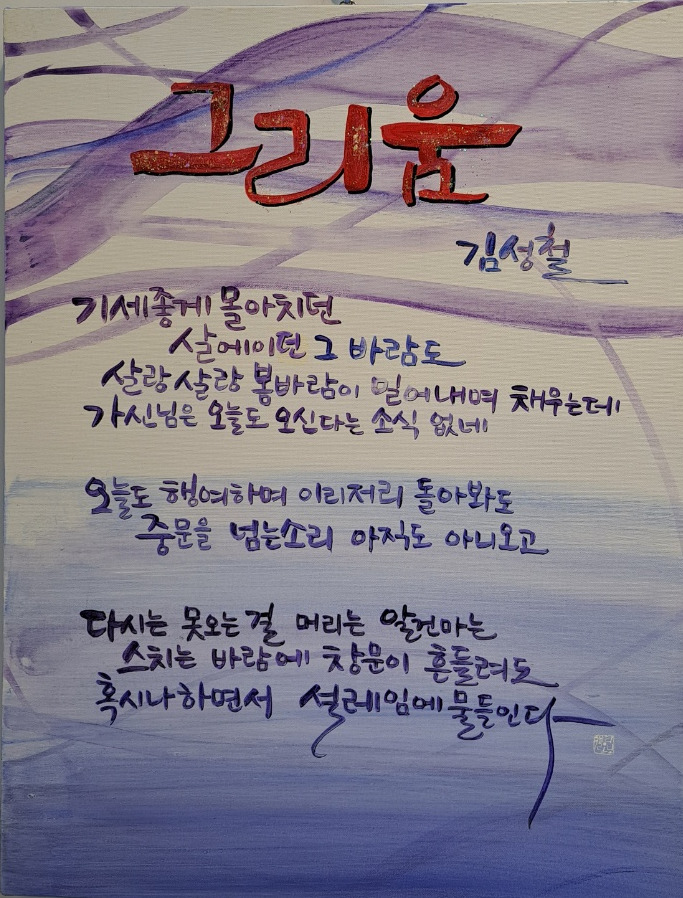 그리움
김성철
기세좋게 몰아치던
살에이던 그 바람도
살랑살랑 봄바람이 밀어내며 채우는데
가신님은 오늘도 오신다는 소식 없네
오늘도 행여하며 이리저리 돌아봐도
중문을 넘는소리 아직도 아니오고
다시는 못오는걸 머리는 알건마는
스치는 바람에 창문이 흔들려도
혹시나하면서 설레임에물들인다